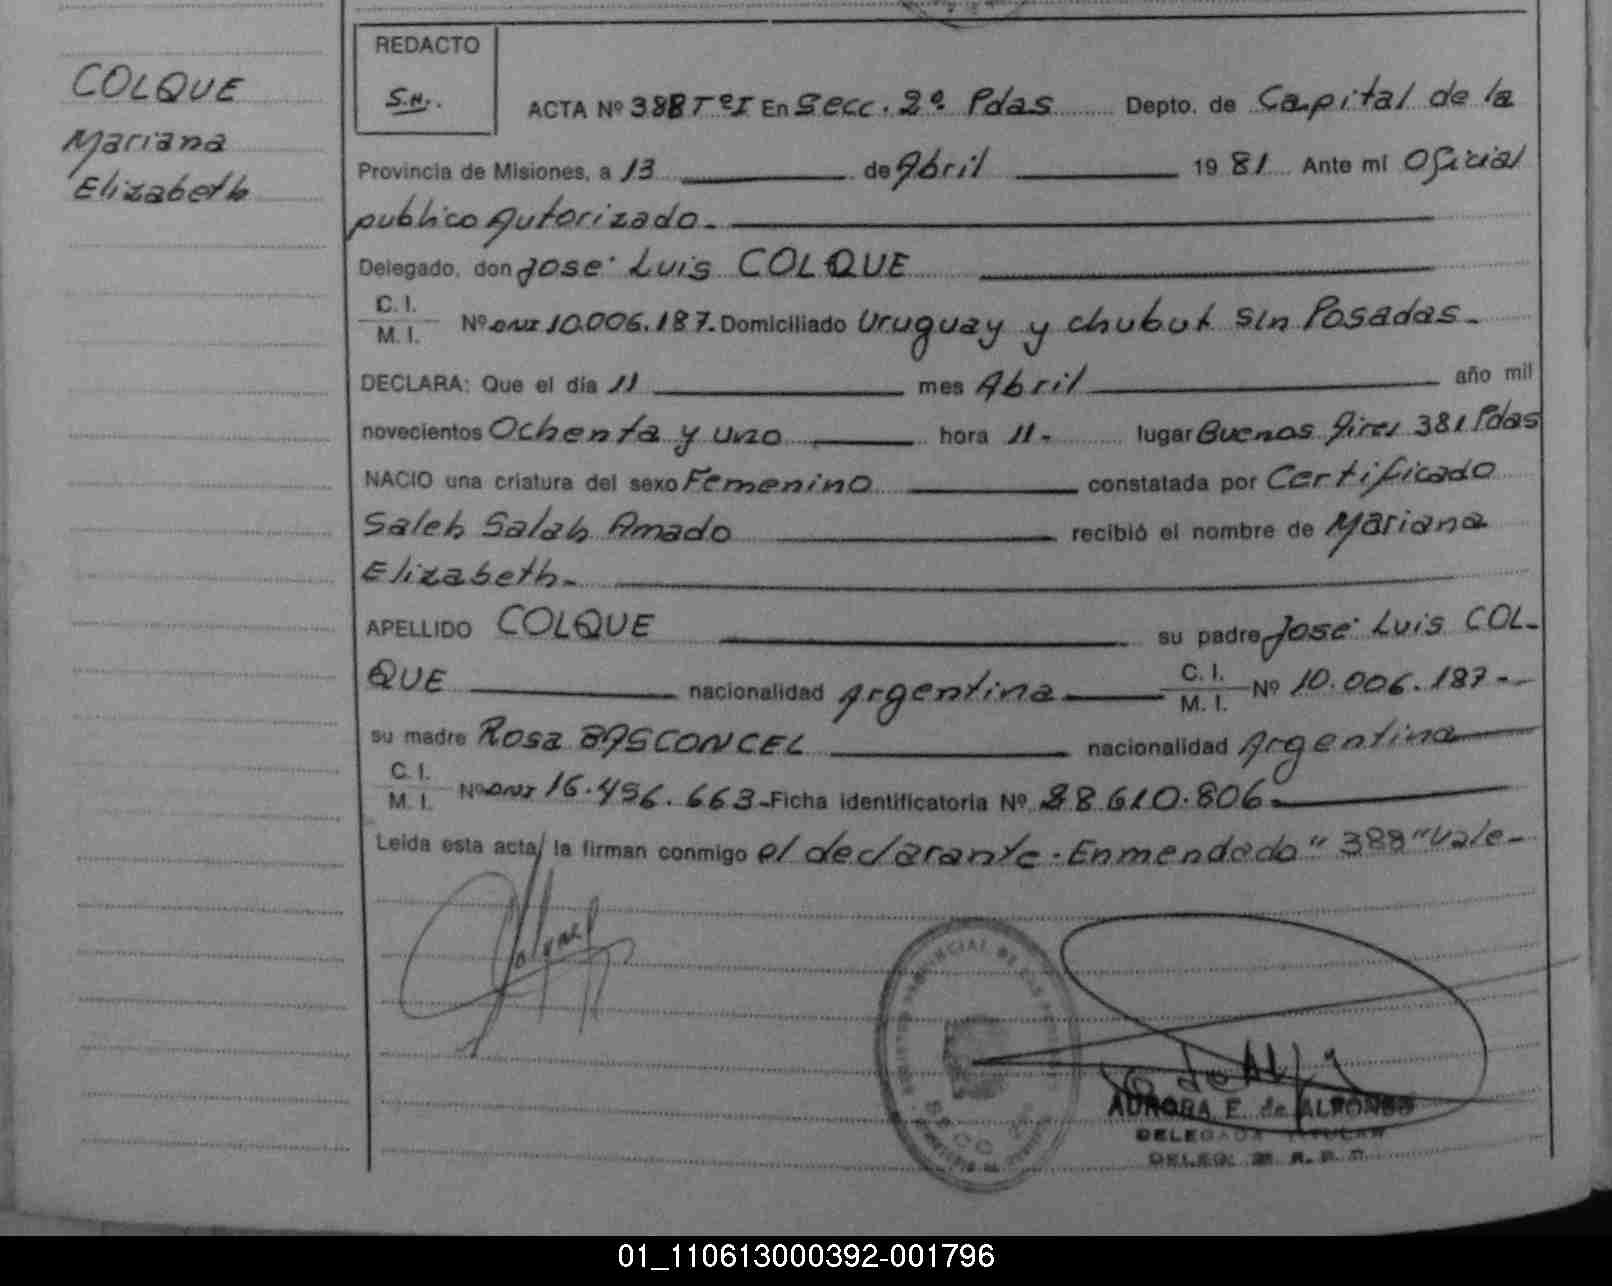 COLQUE
Mariana
Elizabeth
REDACTO
S.N.
ACTA Nº 388 Tº I En Secc. 2º Pdas Depto. de Capital de la
Provincia de Misiones, a 13 de Abril 19 81 Ante mi Oficial
publico Autorizado.
Delegado, don José Luis COLQUE
C. I.
M. I. Nº DNI 10.006.187. Domiciliado Uruguay y chubut S/n Posadas.
DECLARA: Que el día 11 mes Abril año mil
novecientos Ochenta y uno hora 11- lugar Buenos Aires 381 Pdas
NACIO una criatura del sexo Femenino constatada por Certificado
Saleh Salah Amado recibió el nombre de Mariana
Elizabeth.
APELLIDO COLQUE su padre José Luis COL-
QUE nacionalidad Argentina C. I. M. I. Nº 10.006.187--
su madre Rosa BASCONCEL nacionalidad Argentina
C. I.
M. I. Nº DNI 16.496.663- Ficha identificatoria Nº 28.610.806-
Leída esta acta, la firman conmigo el declarante. Enmendado "388" Vale-
AURORA E. de ALFONSO
DELEGADA TITULAR
01_110613000392-001796